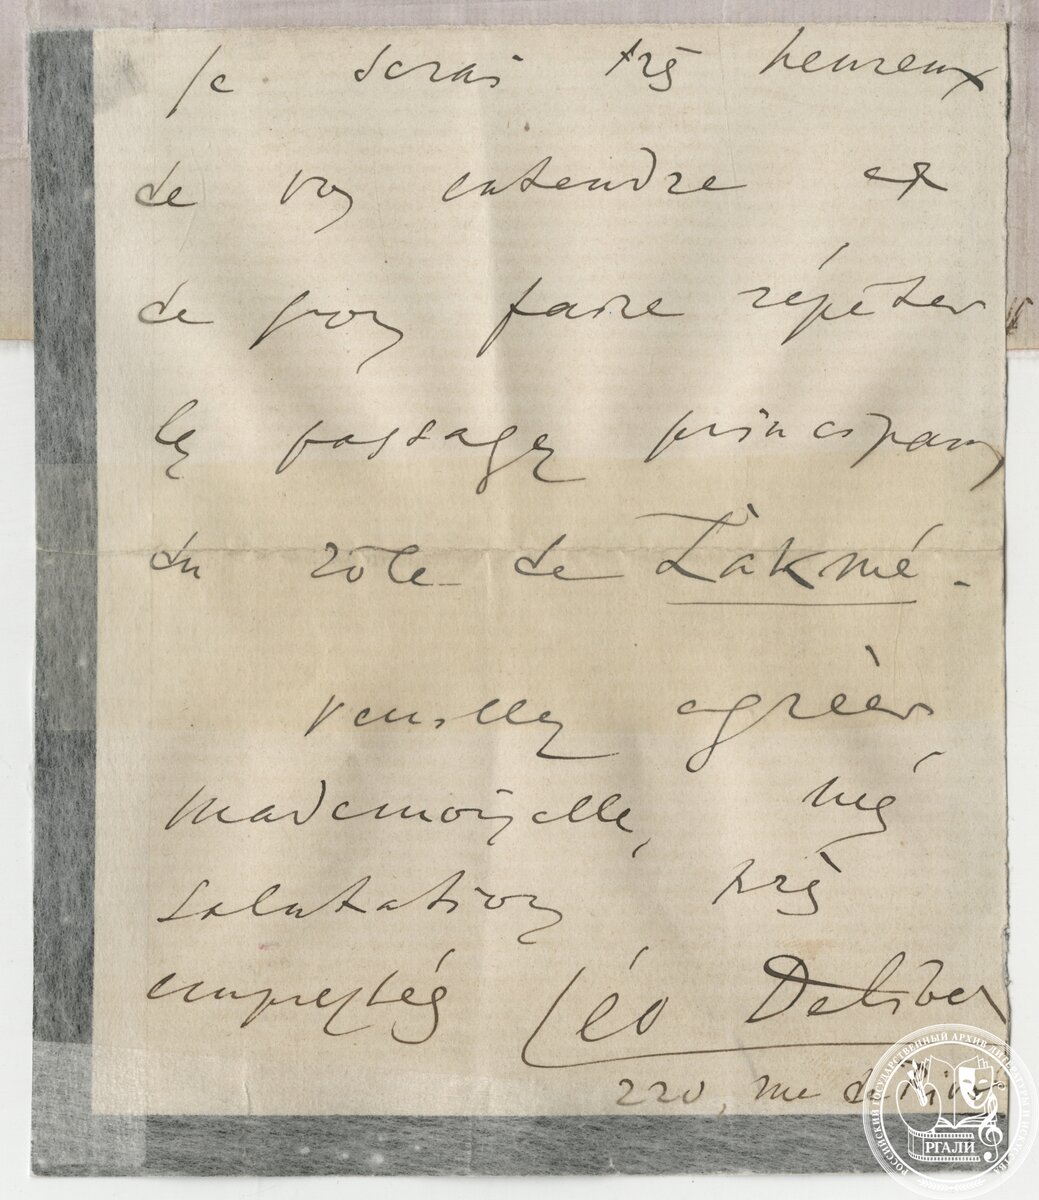 Je serai très heureux
de vous entendre et
de vous faire répéter
les passages principaux
du rôle de Lakmé.
Veuillez agréer,
Mademoiselle, mes
salutations très
empressées Léo Delibes
220, rue de Rivoli
РОССИЙСКИЙ ГОСУДАРСТВЕННЫЙ АРХИВ ЛИТЕРАТУРЫ И ИСКУССТВА
РГАЛИ